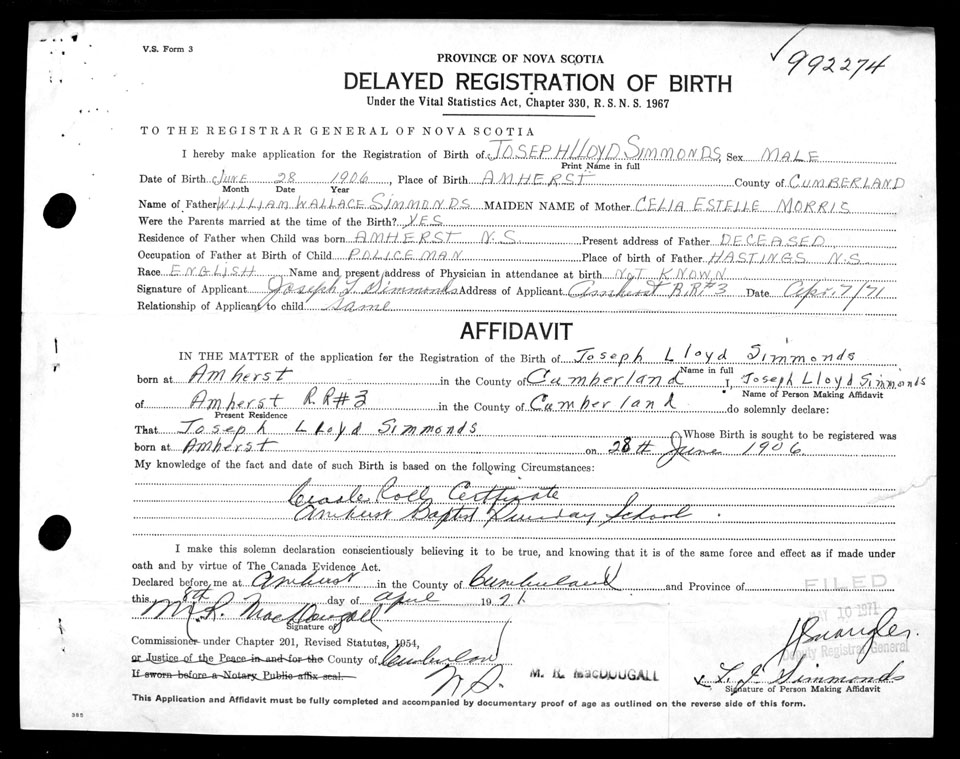 V.S. Form 3
992274
PROVINCE OF NOVA SCOTIA
DELAYED REGISTRATION OF BIRTH
Under the Vital Statistics Act, Chapter 330, R. S. N. S. 1967
TO THE REGISTRAR GENERAL OF NOVA SCOTIA
I hereby make application for the Registration of Birth of JOSEPH LLOYD SIMMONDS, Sex MALE
Print Name in full
Date of Birth JUNE 28 1906, Place of Birth AMHERST County of CUMBERLAND
Month Date Year
Name of Father WILLIAM WALLACE SIMMONDS MAIDEN NAME of Mother CELIA ESTELLE MORRIS
Were the Parents married at the time of the Birth? YES
Residence of Father when Child was born AMHERST N.S. Present address of Father DECEASED
Occupation of Father at Birth of Child POLICEMAN Place of birth of Father HASTINGS N.S.
Race ENGLISH Name and present address of Physician in attendance at birth NOT KNOWN
Signature of Applicant Joseph L Simmonds Address of Applicant Amherst R.R#3 Date Apr. 7/71
Relationship of Applicant to child same
AFFIDAVIT
IN THE MATTER of the application for the Registration of the Birth of Joseph Lloyd Simmonds
Name in full
born at Amherst in the County of Cumberland I, Joseph Lloyd Simmonds
Name of Person Making Affidavit
of Amherst R.R#3 in the County of Cumberland do solemnly declare:
Present Residence
That Joseph Lloyd Simmonds Whose Birth is sought to be registered was
born at Amherst on 28th June 1906
My knowledge of the fact and date of such Birth is based on the following Circumstances:
Cradle Roll Certificate
Amherst Baptist Sunday School.
I make this solemn declaration conscientiously believing it to be true, and knowing that it is of the same force and effect as if made under
oath and by virtue of The Canada Evidence Act.
Declared before me at Amherst in the County of Cumberland and Province of
FILED
this 8th day of April 1971.
10 1971
M. R. MacDougall
Signature of
Deputy Registrar General
Commissioner under Chapter 201, Revised Statutes, 1954,
or Justice of the Peace in and for the County of Cumberland
N.S.
If sworn before a Notary Public affix seal.
M. R. MacDOUGALL
L. J. Simmonds
Signature of Person Making Affidavit
This Application and Affidavit must be fully completed and accompanied by documentary proof of age as outlined on the reverse side of this form.